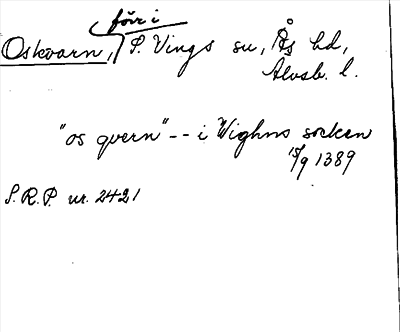 förr i
Oskvarn, S. Vings sn, Ås hd,
Älvsb. l.
"os qvern" -- i Wighns sokken
15/9 1389
S.R.P. nr. 2421